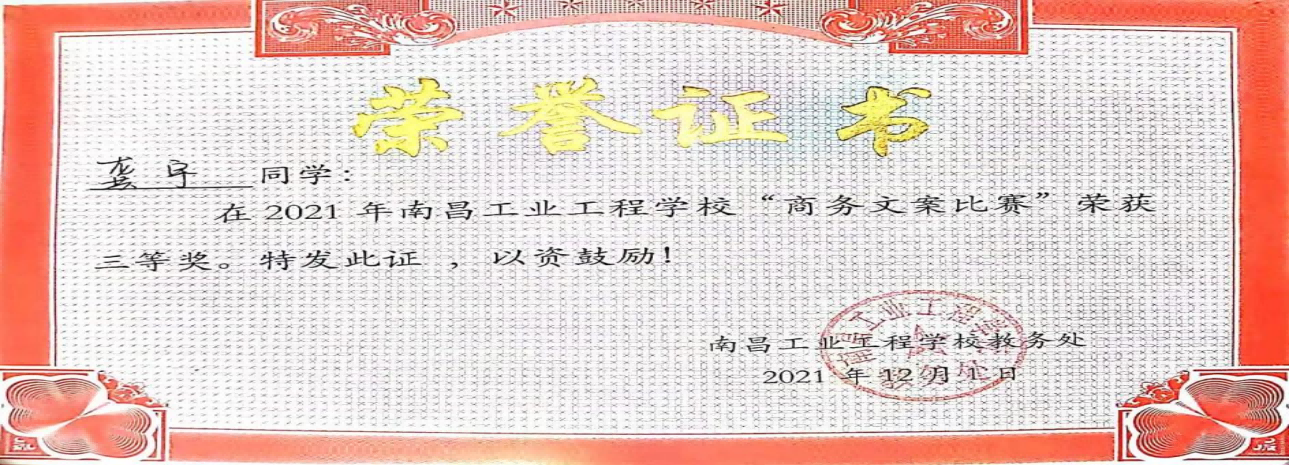 荣誉证书
龚宇 同学：
在 2021 年南昌工业工程学校“商务文案比赛”荣获
三等奖。特发此证 ，以资鼓励！
南昌工业工程学校教务处
2021 年 12 月 1 日
南昌工业工程学校
教务处